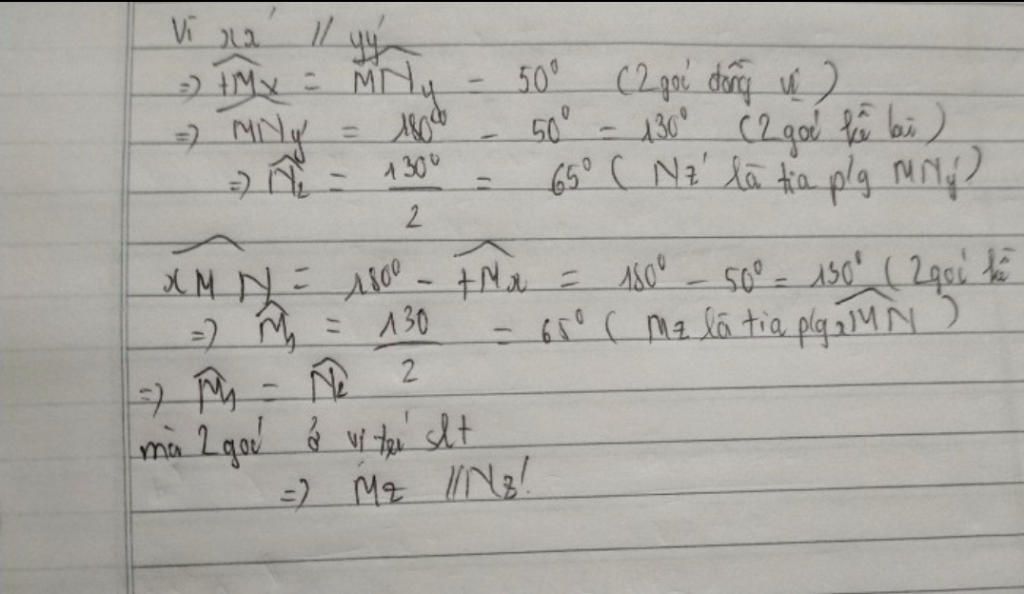 Vì xx' // yy'
=> tMx = MNy = 50° (2 goí đồng vị)
=> MNy' = 180° - 50° = 130° (2 goí kề bù)
=> N₂ = 130°/2 = 65° (Nz' là tia p/g MNy')
xMN = 180° - tMx = 180° - 50° = 130° (2 goí kề
=> M₁ = 130/2 = 65° (Mz là tia p/g xMN)
=> M₁ = N₂
mà 2 goí ở vị trí slt
=> Mz // Nz'